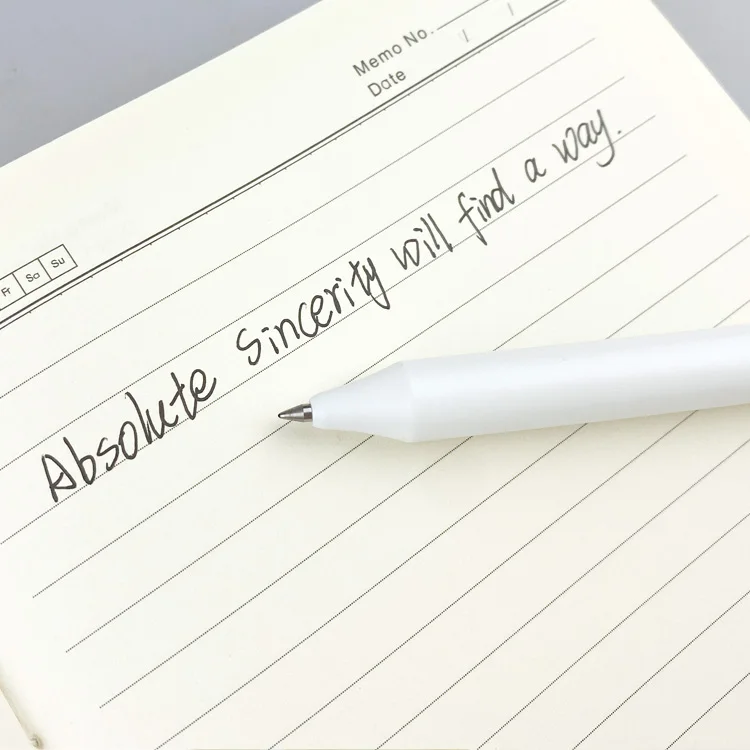 Memo No.
Date / /
Fr Sa Su
Absolute sincerity will find a way.